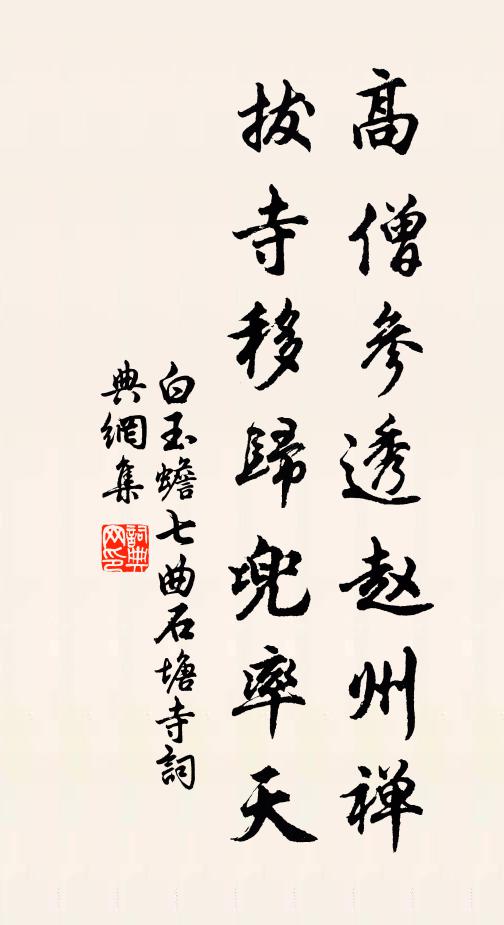 高僧參透赵州禅
拔寺移歸兜率天
白玉蟾七曲石塘寺詞
典網集
詞典網印